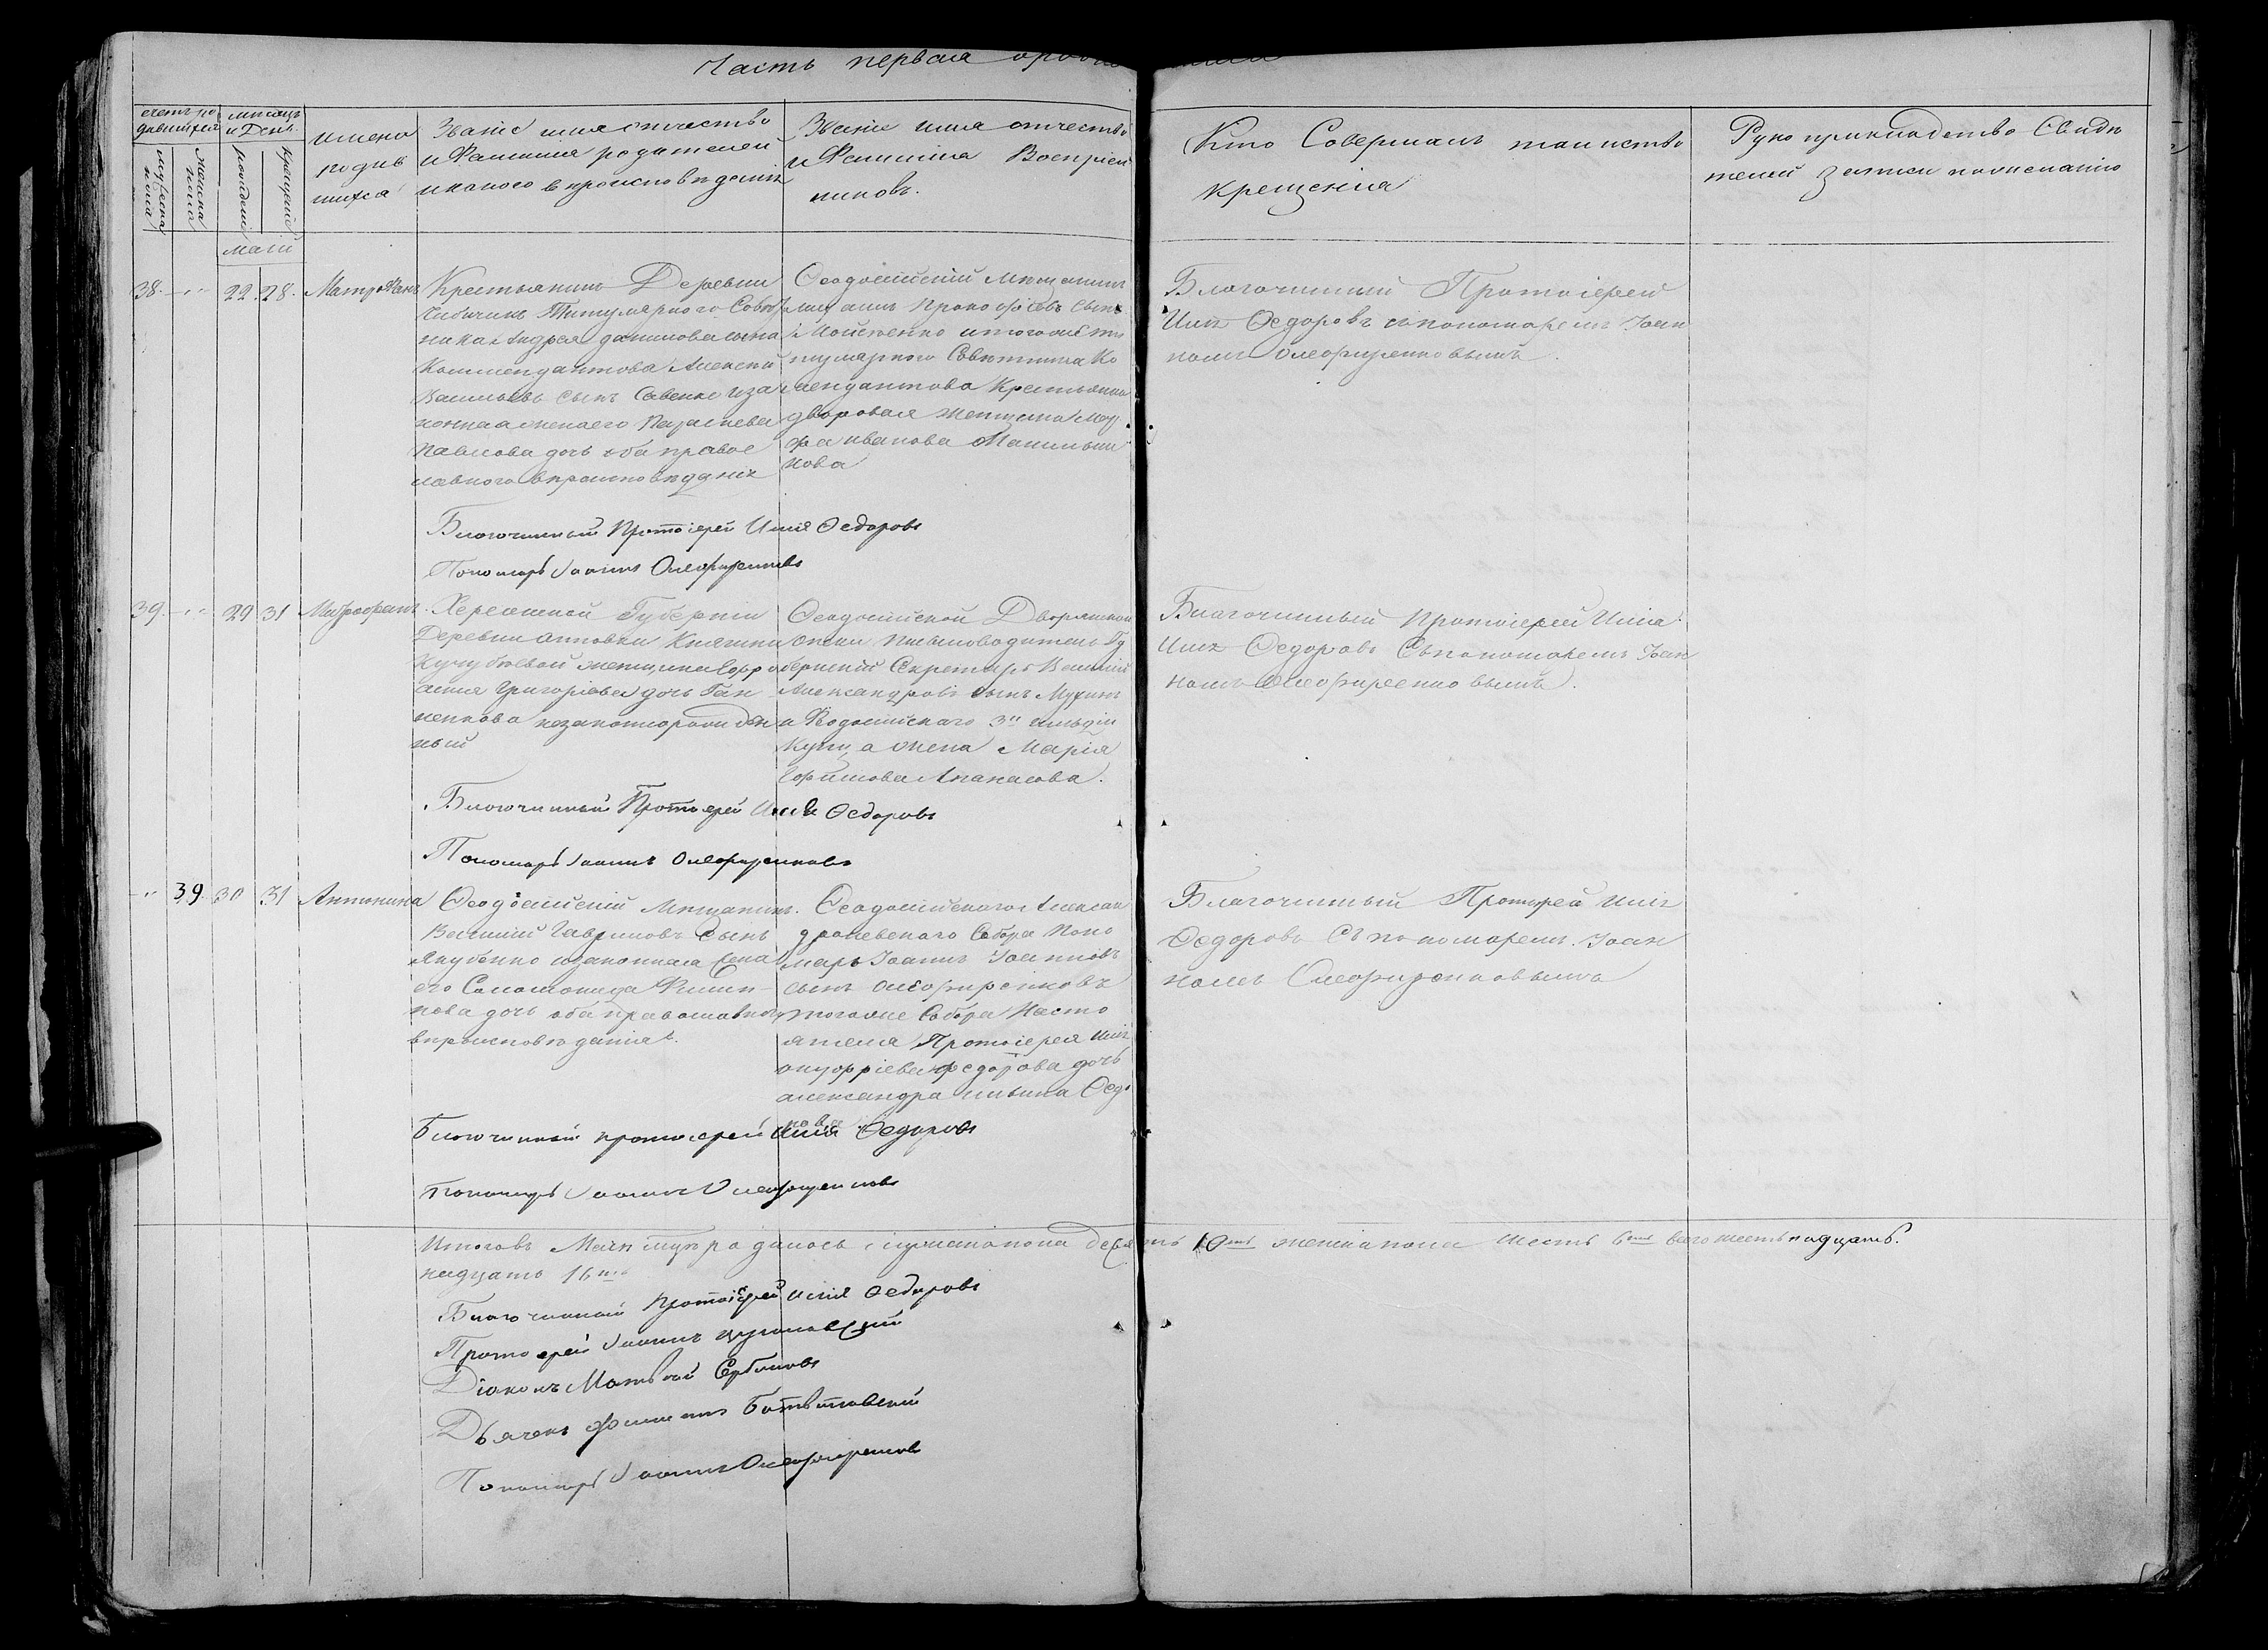 Часть первая о родив шихся
счетъ ро
дившихся
мѣсяцъ
и День.
мужеска
пола
женска
пола
рожденія
крещенія
имена
родив
шихся
Званіе имя отчество
и Фамилія родителей
и какого вѣроисповѣданія
Званіе имя отчество
и Фамилія Воспріем
никовъ.
Кто Совершалъ таинство
крещенія
Рукоприкладство Свидѣ
телей записи по желанію
маій
38. 22. 28. Митрофанъ
Крестьянинъ Деревни
Титулярного Совѣт
ника Андрея данилова сына
Коммендантова Алексей
Васильевъ сынъ Савенко и за
конная жена его Параскева
Павлова дочь оба правос
лавного вѣроисповѣданія
Ѳеодосійскій Мѣщанинъ
Прокофіевъ сынъ
Мойсеенко и того же ти
тулярного Совѣтника Ко
мендантова Крестьянка
дворовая женщина
иванова
нова
Благочинный Протоіерей
Илія Ѳедоровъ съ пономаремъ Іоан
номъ Олефиренковымъ.
Благочинный Протоіерей Илія Ѳедоровъ
Пономарь Іоаннъ Олефиренковъ
39. 29 31 Митрофанъ.
Херсонской Губерніи
Деревни Анновки Княгини
Кучубѣевой женщина Евфро
синія Григоріева дочь Ган
ненкова незаконнорожден
ный
Ѳеодосійской Дворянской
Опеки письмоводитель Гу
бернскій Секретарь Василій
Александровъ сынъ Мухинъ
и Ѳеодосійского 3й гильдіи
Купца жена Марія
Ефимова Апанасова.
Благочинный Протоіерей Илія
Илія Ѳедоровъ Съ пономаремъ Іоан
номъ Олефиренковымъ.
Благочинный Протоіерей Илія Ѳедоровъ
Пономарь Іоаннъ Олефиренковъ
39. 30 31 Антонина
Ѳеодосійскій Мѣщанинъ.
Василій Гавриловъ Сынъ
Якубенко и законная жена
его Соломонида Филип
пова дочь оба православного
вѣроисповѣданія.
Ѳеодосійского Алексан
дроневского Собора Поно
марь Іоаннъ Іоанновъ
сынъ Олефиренковъ
того же Собора Насто
ятеля Протоіерея Иліи
онуфріева федорова дочь
александра ильина Ѳедо
рова
Благочинный Протоіерей Илія
Ѳедоровъ Съ пономаремъ. Іоан
номъ Олефиренковымъ
Благочинный протоіерей Илія Ѳедоровъ
Пономарь Іоаннъ Олефиренковъ
Итого въ Маіи родилось мужеска пола деся ть 10ть женска пола шесть 6ть всего шестьнадцать.
надцать 16ть
Благочинный Протоіерей Илія Ѳедоровъ
Протоіерей Іоаннъ
Діаконъ Матвей Сербиновъ
Дьячекъ
Пономарь Іоаннъ Олефиренковъ